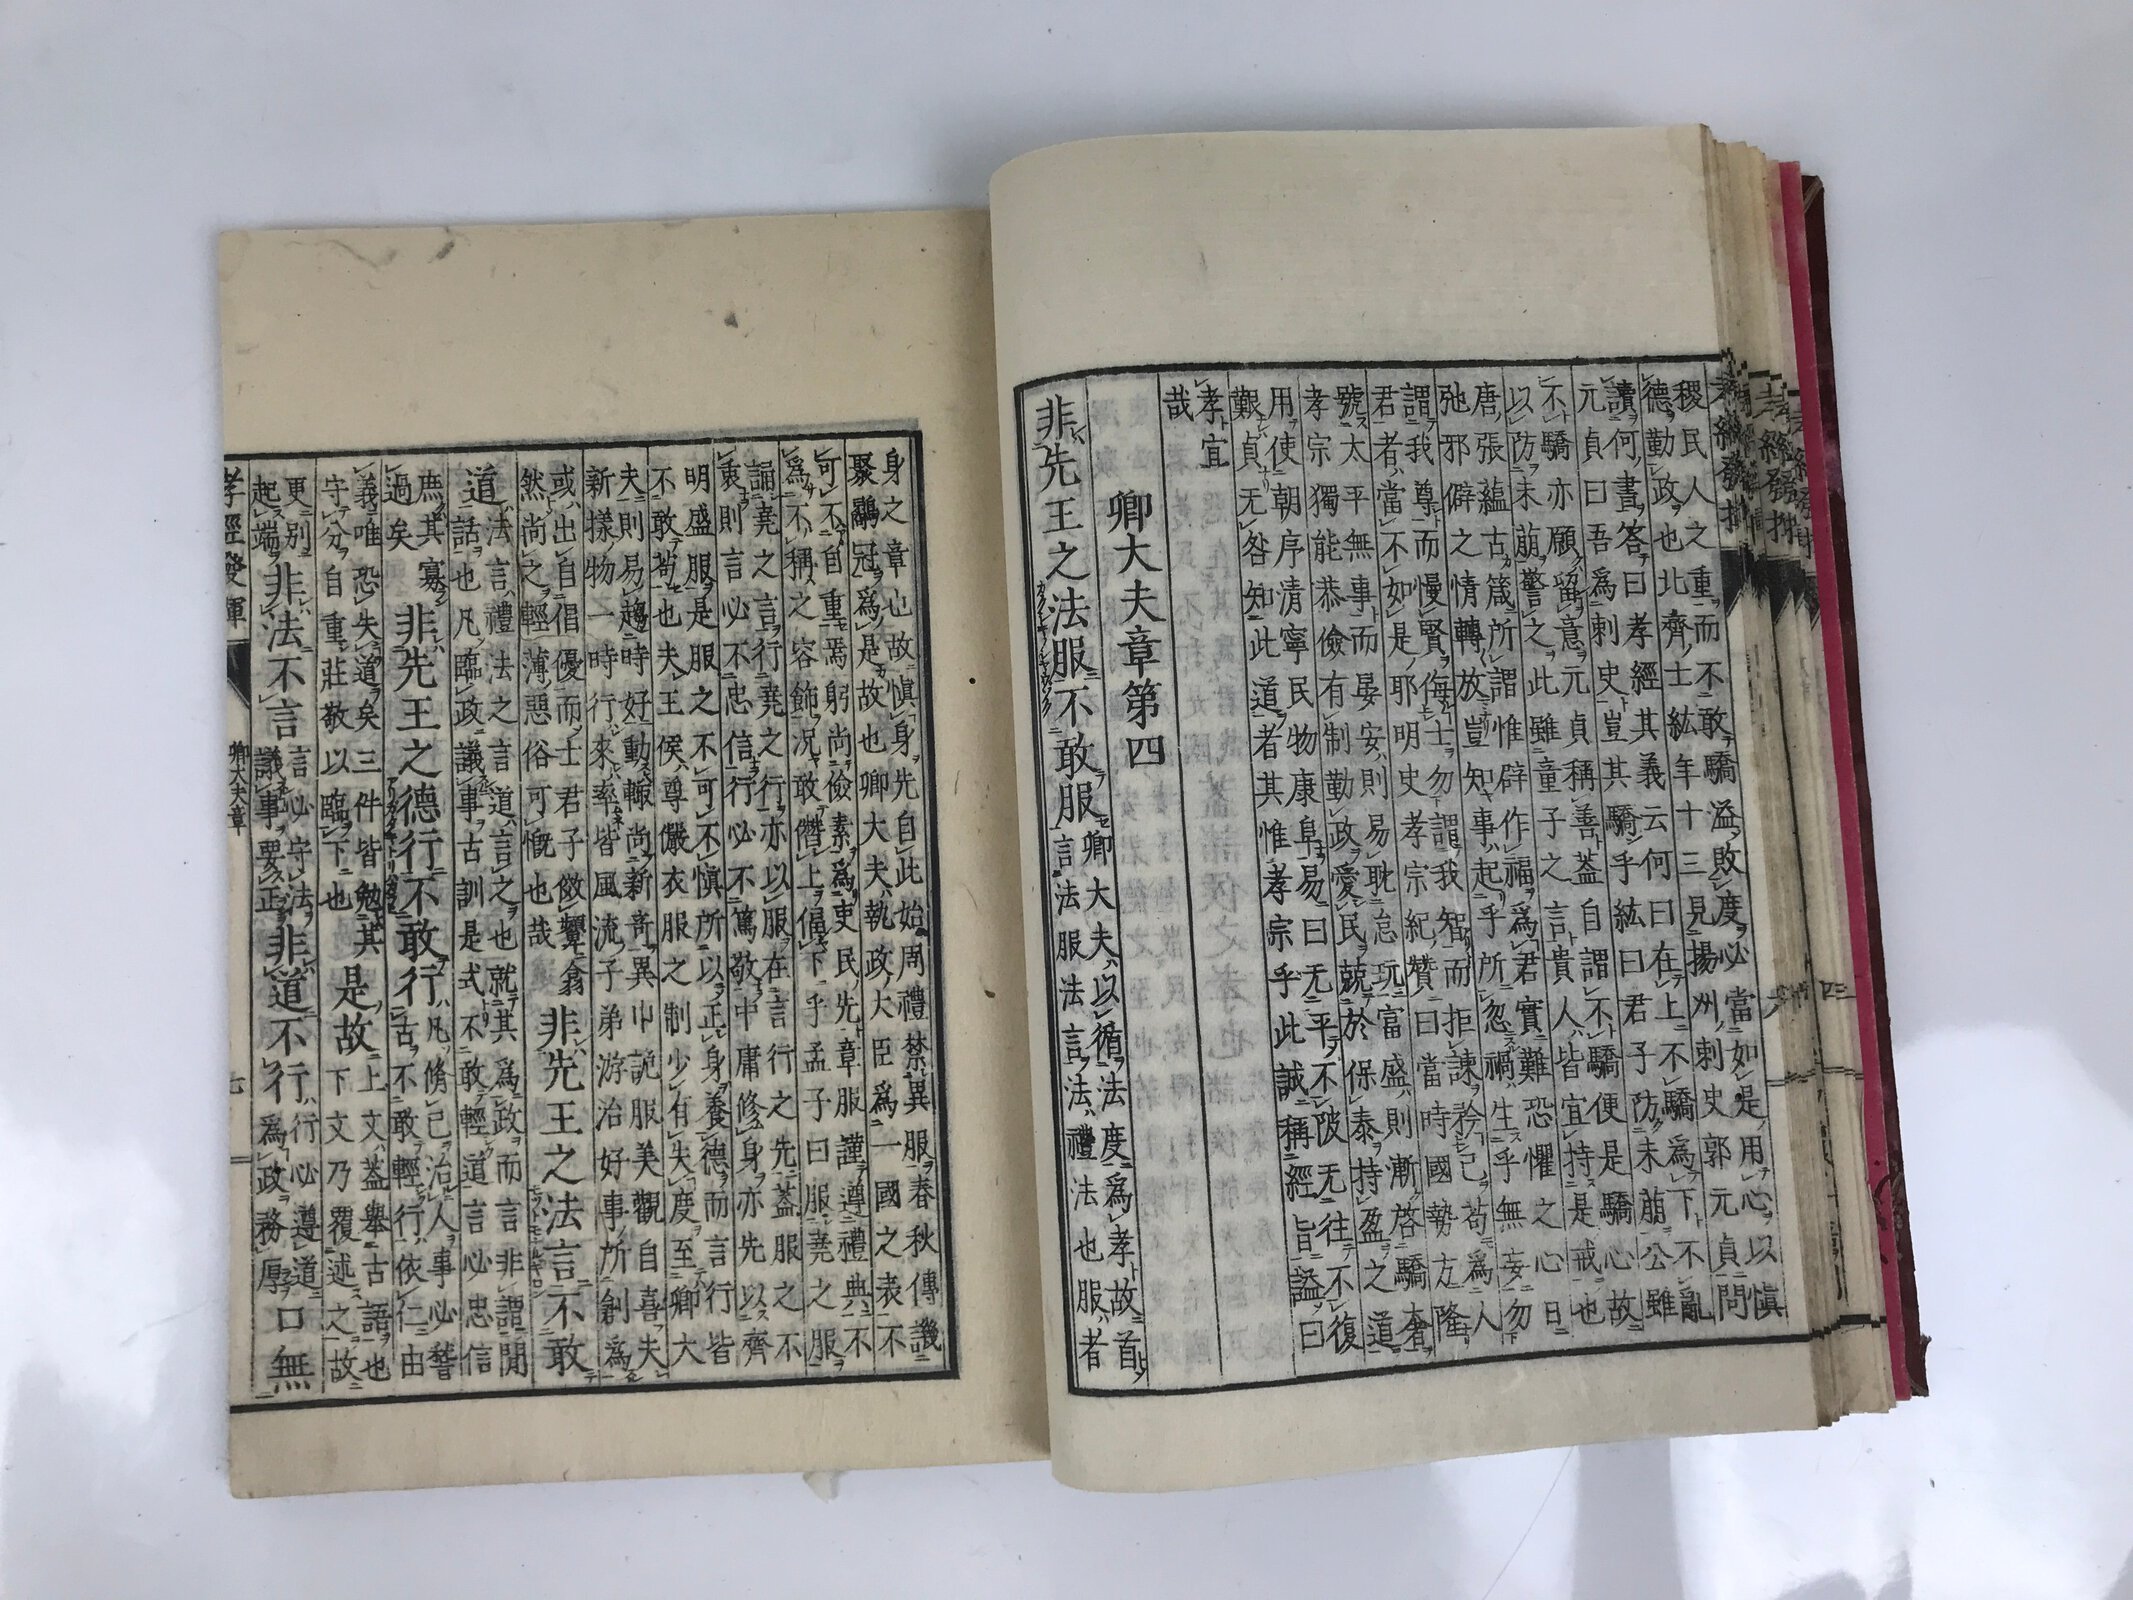 稷民人之重而不敢驕溢敗度必當如是用心以愼
德勤政也北齊士紘年十三見揚州刺史郭元貞問
讀何書答曰孝經其義云何曰在上不驕爲下不亂
元貞曰吾爲刺史豈其驕乎紘曰君子防未萠公雖
不驕亦願留意元貞稱善蓋自謂不驕便是驕心故
以防未萠警之此雖童子之言貴人皆宜持是戒也
唐張蘊古箴所謂惟辟作福爲君實難恐懼之心日
弛邪僻之情轉放豈知事起乎所忽禍生乎無妄勿
謂我尊而慢賢侮士勿謂我智而拒諫矜己苟爲人
君者當不如是耶明史孝宗紀贊曰當時國勢方隆
號太平無事而晏安則易耽怠玩富盛則漸啓驕奢
孝宗獨能恭儉有制勤政愛民兢於保泰持盈之道
用使朝序清寧民物康阜易曰无平不陂无往不復
艱貞无咎知此道者其惟孝宗乎此誠稱經旨謚曰
孝宜
哉
卿大夫章第四
非先王之法服不敢服卿大夫以循法度爲孝故首
言法服法言法禮法也服者
身之章也故愼身先自此始周禮禁異服春秋傳譏
聚鷸冠爲是故也卿大夫執政大臣爲一國之表不
可不自重焉躬尚儉素爲吏民先章服謹遵禮典不
爲不稱之容飾况敢僭上偪下乎孟子曰服堯之服
誦堯之言行堯之行亦以服在言行之先蓋服之不
衷則言必不忠信行必不篤敬中庸修身亦先以齊
明盛服是服之不可不愼所以正身養德而言行皆
不敢苟也夫王侯尊儼衣服之制少有失度至卿大
夫則易趨時好動輙尚新奇異巾詭服美觀自喜夫
新樣物一時行來率皆風流子弟游治好事所創爲
或出自倡優而士君子傚顰翕
然尚之輕薄惡俗可慨也哉
非先王之法言不敢
道法言禮法之言道言之也就其爲政而言非謂閒
話也凡臨政議事古訓是式不敢輕道言必忠信
庶其寡
過矣
非先王之德行不敢行凡脩己治人事必稽
古不敢輕行依仁由
義唯恐失道矣三件皆勉其
守分自重莊敬以臨下也
是故上文蓋擧古語也
下文乃覆述之故
更別
起端
非法不言言必守法
議事要正
非道不行行必遵道
爲政務厚
口無
孝經發揮
卿大夫章
七